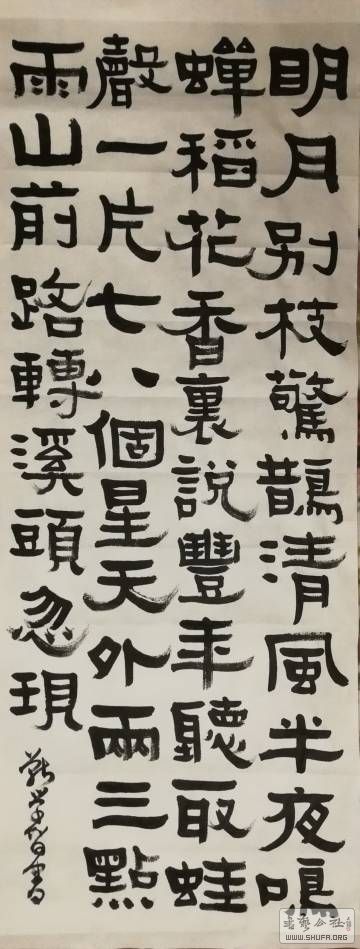 眀月别枝驚鵲清風半夜鳴
蟬稻花香裏說豐年聽取蛙
聲一片七、個星天外兩三點
雨山前路轉溪頭忽現
書
書藝公社
WWW.SHUFA.ORG